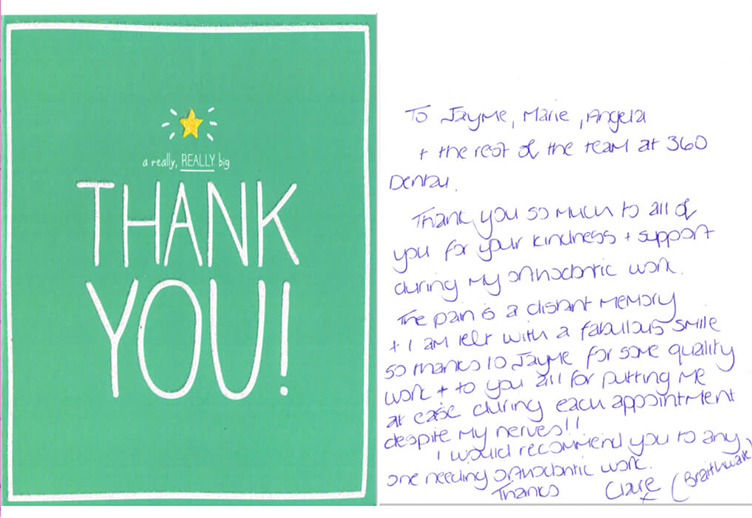 a really, REALLY big
THANK
YOU!
To Jayme, Marie, Angela
+ the rest of the team at 360
Dental.
Thank you so much to all of
you for your kindness + support
during my orthodontic work.
The pain is a distant memory
+ I am left with a fabulous smile
so thanks to Jayme for some quality
work + to you all for putting me
at ease during each appointment
despite my nerves!!
I would recommend you to any
one needing orthodontic work.
Thanks Clare (Braithwaite)
x